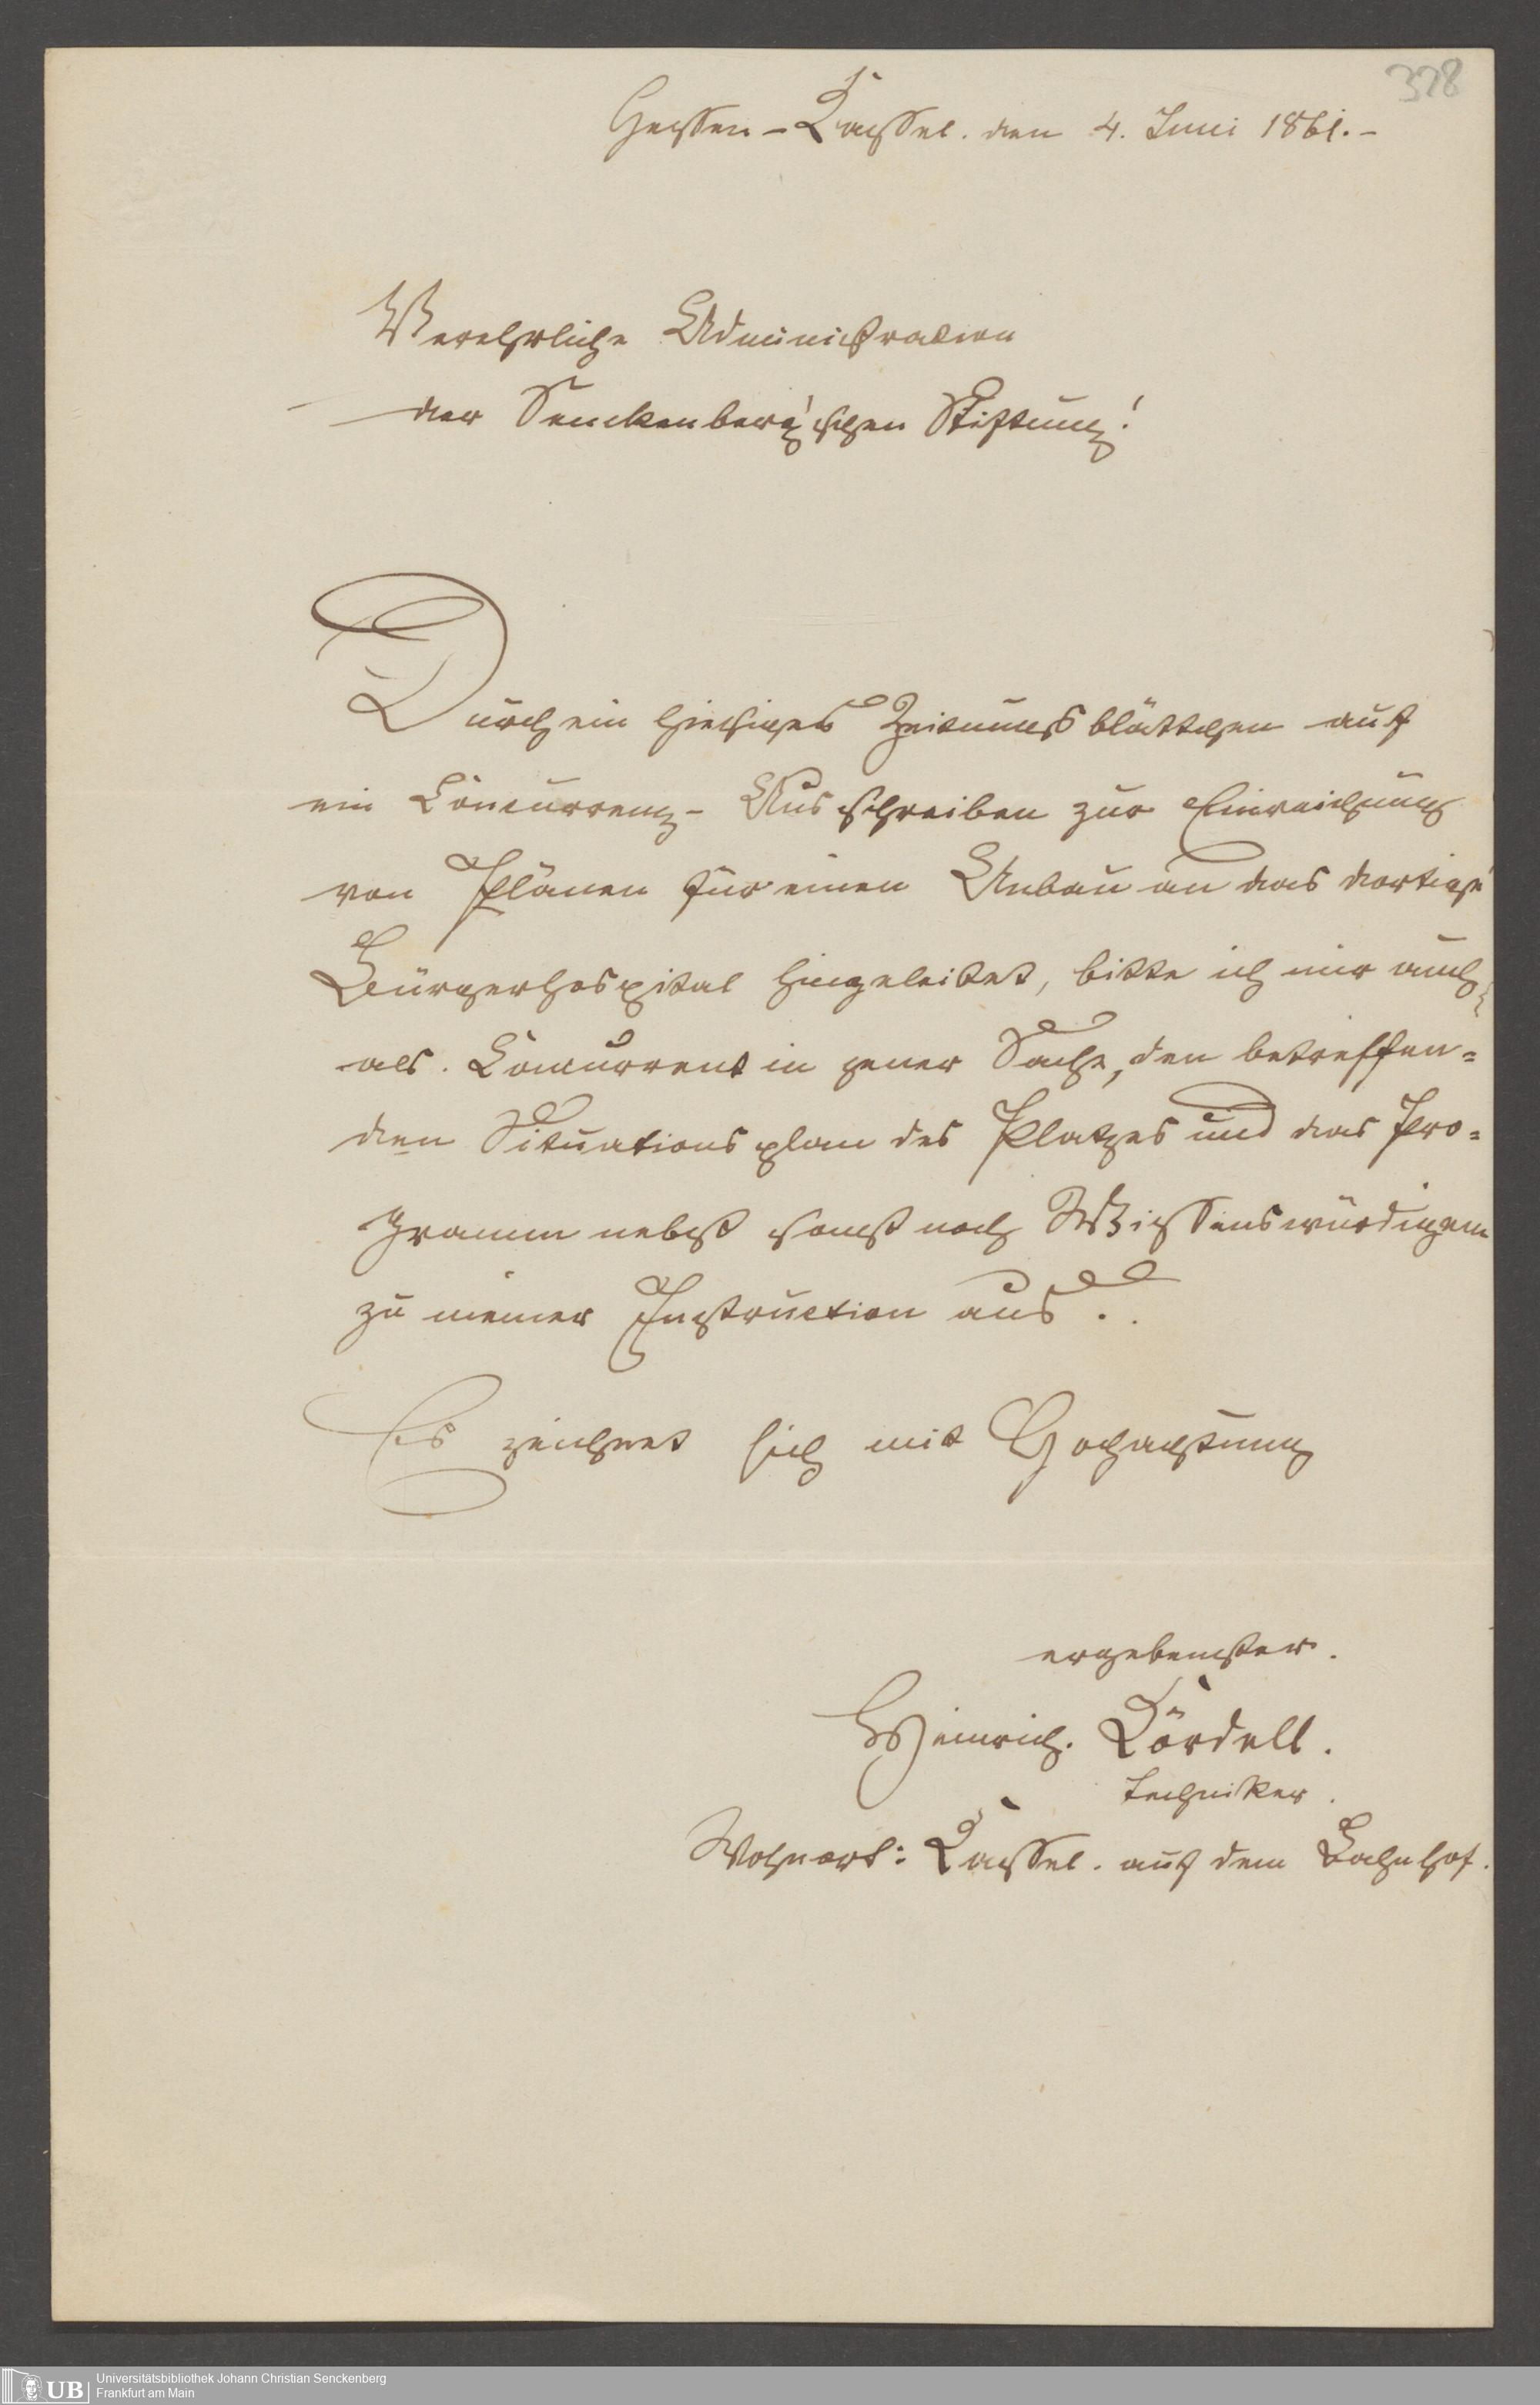 378
Hessen-Cassel. den 4. Juni 1861.-
Verehrliche Administration
der Senckenberg'schen Stiftung!
Durch ein hiesiges Zeitungsblättchen auf
ein Concurrenz-Ausschreiben zur Einreichung
von Plänen für einen Anbau an das dortige
Bürgerhospital hingeleitet, bitte ich mir auch
als Concurrent in jener Sache, den betreffen=
den Situationsplan des Platzes und das Pro=
gramm nebst sonst noch Wissenswürdigem
zu meiner Instruction aus.
Es zeichnet sich mit Hochachtung
ergebenster.
Heinrich. Cördell.
Techniker.
Wohnort: Cassel. auf dem Bahnhof.
UB
Universitätsbibliothek Johann Christian Senckenberg
Frankfurt am Main